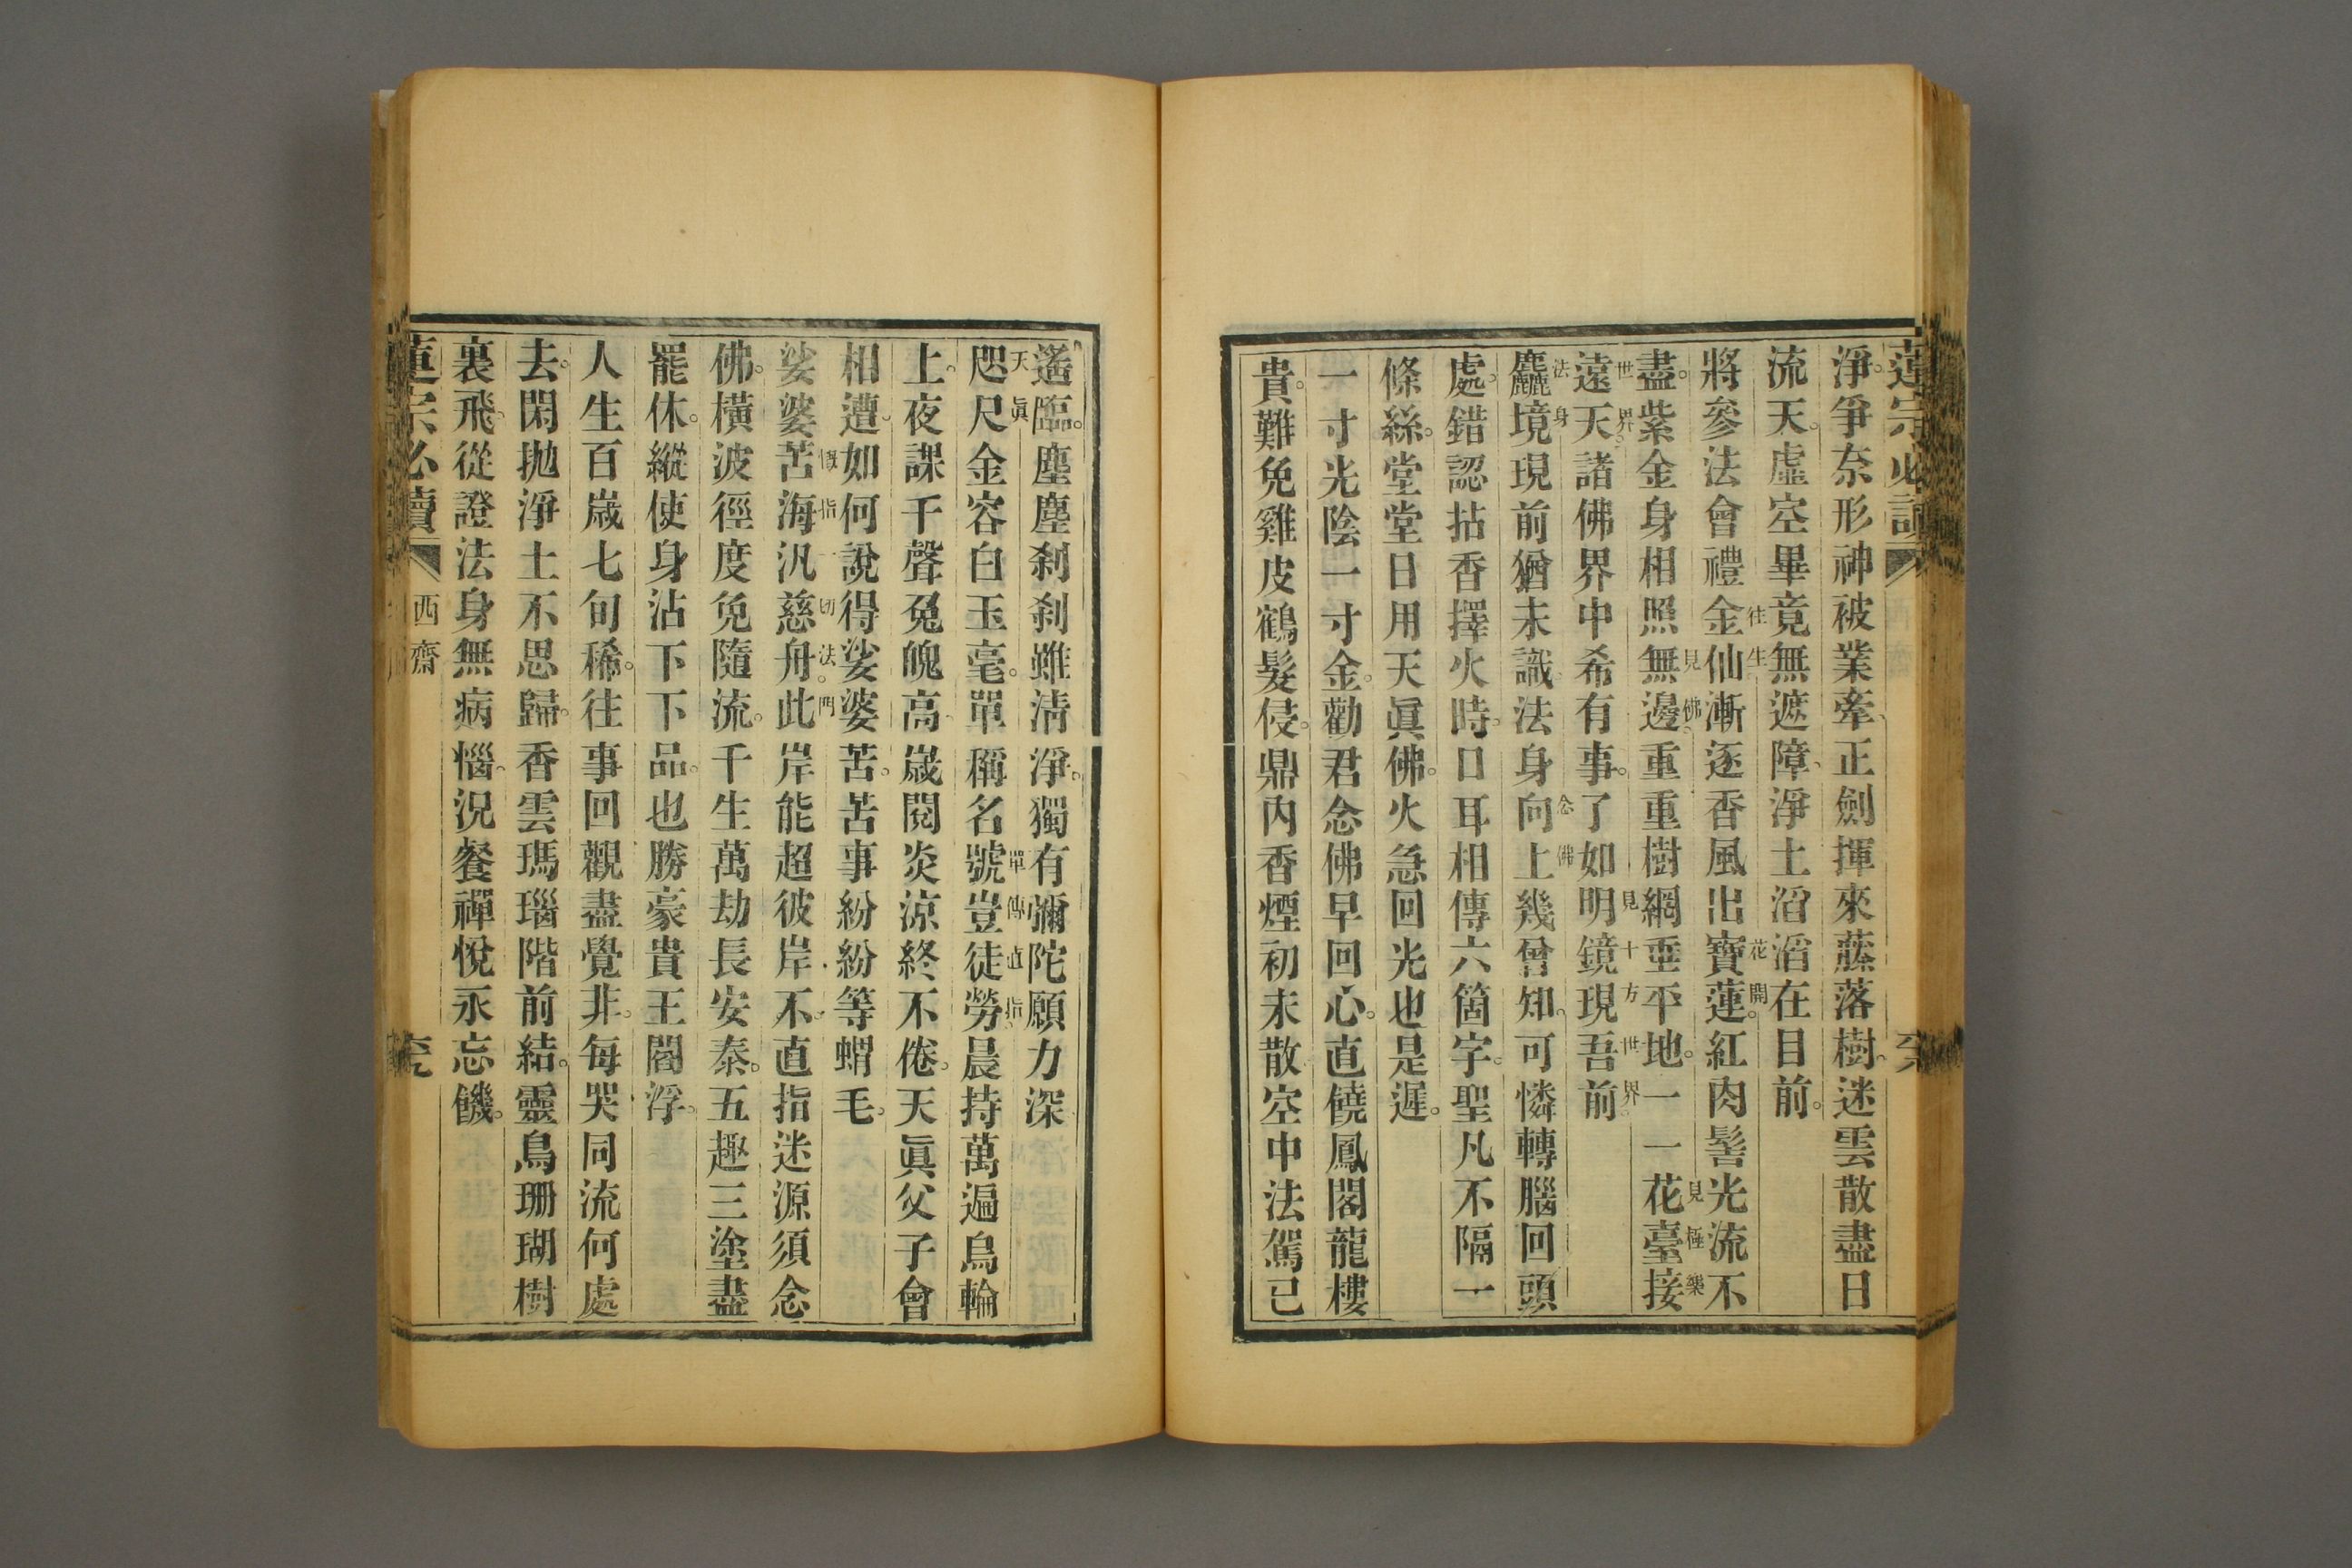 蓮宗必讀
六
淨。爭奈形神被業牽、正劍揮來藤落樹。迷雲散盡日
流天。虛空畢竟無遮障、淨土滔滔在目前。
往生
花開。
將參法會禮金仙漸逐香風出寶蓮。紅肉髻光流不
見佛。
見極樂
盡。紫金身相照無邊、重重樹網垂平地。一一花臺接
世界。
見十方世界
遠天。諸佛界中希有事。了如明鏡現吾前
法身
念佛
麤境現前猶未識法身向上幾曾知。可憐轉腦回頭
處。錯認拈香擇火時。口耳相傳六箇字。聖凡不隔一
條絲。堂堂日用天眞佛。火急回光也是遲。
一寸光陰一寸金。勸君念佛早回心。直饒鳳閣龍樓
貴。難免雞皮鶴髮侵。鼎內香煙初未散空中法駕已
遙臨。塵塵刹刹雖清淨。獨有彌陀願力深
天眞
單傳直指。
咫尺金容白玉毫。單稱名號豈徒勞。晨持萬遍烏輪
上。夜課千聲兔魄高、歲閱炎涼終不倦。天眞父子會
相遭。如何說得娑婆苦。苦事紛紛等蝟毛。
慨指一切法。門
娑婆苦海汎慈舟。此岸能超彼岸不。直指迷源須念
佛。橫波徑度免隨流。千生萬劫長安泰。五趣三塗盡
罷休。縱使身沾下下品。也勝豪貴王閻浮。
人生百歲七旬稀。往事回觀盡覺非。每哭同流何處
去。閑拋淨土不思歸。香雲瑪瑙階前結。靈鳥珊瑚樹
裏飛。從證法身無病惱。況餐禪悅永忘饑。
蓮宗必讀
西齋